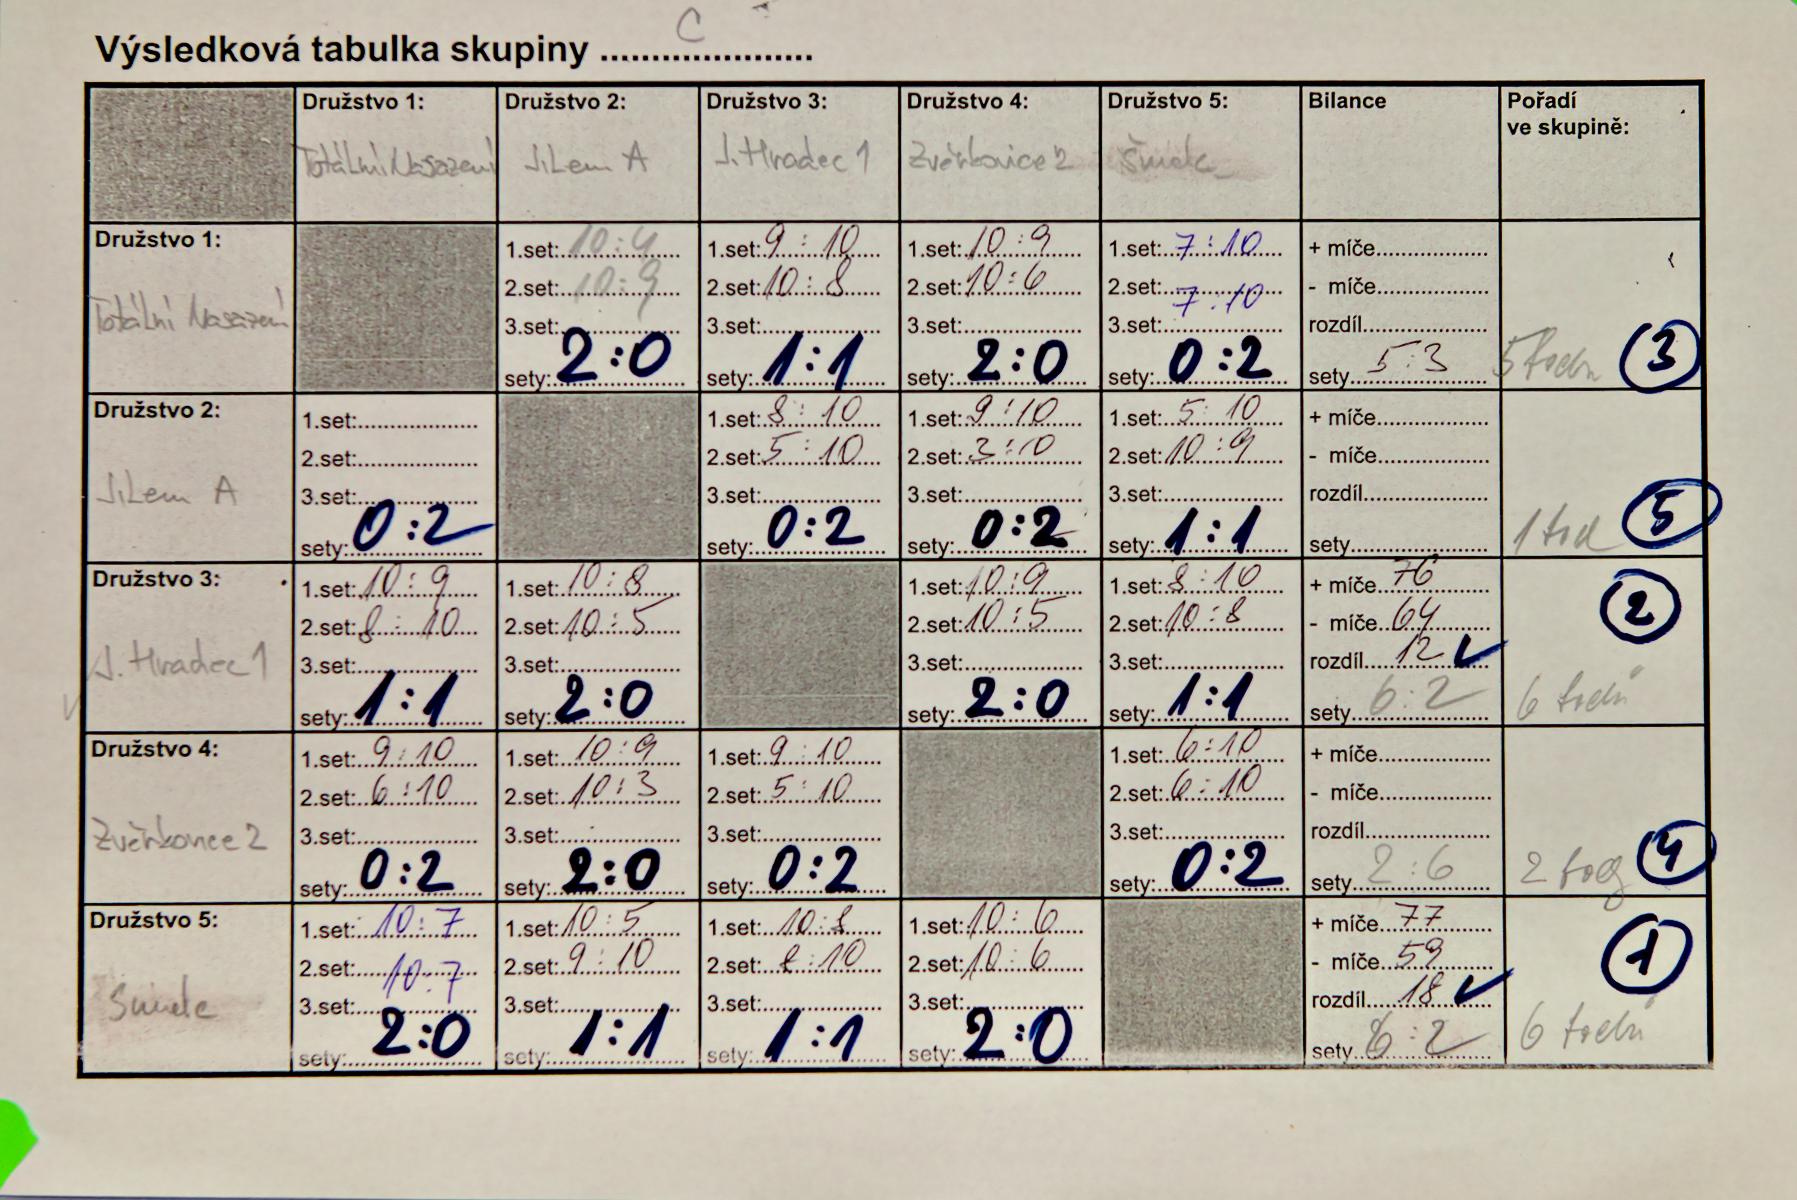 Výsledková tabulka skupiny ..................... C
Družstvo 1: Družstvo 2: Družstvo 3: Družstvo 4: Družstvo 5: Bilance Pořadí
ve skupině:
Totální Nasazení Jilem A J. Hradec 1 Zvěrkovice 2
Družstvo 1: 1.set: 10:4 1.set: 9:10 1.set: 10:9 1.set: 7:10 + míče
2.set: 10:9 2.set: 10:8 2.set: 10:6 2.set: 7:10 - míče
Totální Nasazení 3.set: 3.set: 3.set: 3.set: rozdíl
sety: 2:0 sety: 1:1 sety: 2:0 sety: 0:2 sety 5:3 5 bodů 3
Družstvo 2: 1.set: 1.set: 8:10 1.set: 9:10 1.set: 5:10 + míče
2.set: 2.set: 5:10 2.set: 3:10 2.set: 10:9 - míče
Jilem A 3.set: 3.set: 3.set: 3.set: rozdíl
sety: 0:2 sety: 0:2 sety: 0:2 sety: 1:1 sety 1 bod 5
Družstvo 3: 1.set: 10:9 1.set: 10:8 1.set: 10:9 1.set: 8:10 + míče 76 2
2.set: 8:10 2.set: 10:5 2.set: 10:5 2.set: 10:8 - míče 64
J. Hradec 1 3.set: 3.set: 3.set: 3.set: rozdíl 12 ✓
sety: 1:1 sety: 2:0 sety: 2:0 sety: 1:1 sety 6:2 6 bodů
Družstvo 4: 1.set: 9:10 1.set: 10:9 1.set: 9:10 1.set: 6:10 + míče
2.set: 6:10 2.set: 10:3 2.set: 5:10 2.set: 6:10 - míče
Zvěrkovice 2 3.set: 3.set: 3.set: 3.set: rozdíl
sety: 0:2 sety: 2:0 sety: 0:2 sety: 0:2 sety 2:6 2 body 4
Družstvo 5: 1.set: 10:7 1.set: 10:5 1.set: 10:8 1.set: 10:6 + míče 77 1
2.set: 10:7 2.set: 9:10 2.set: 8:10 2.set: 10:6 - míče 59
3.set: 3.set: 3.set: 3.set: rozdíl 18 ✓
sety: 2:0 sety: 1:1 sety: 1:1 sety: 2:0 sety 6:2 6 bodů